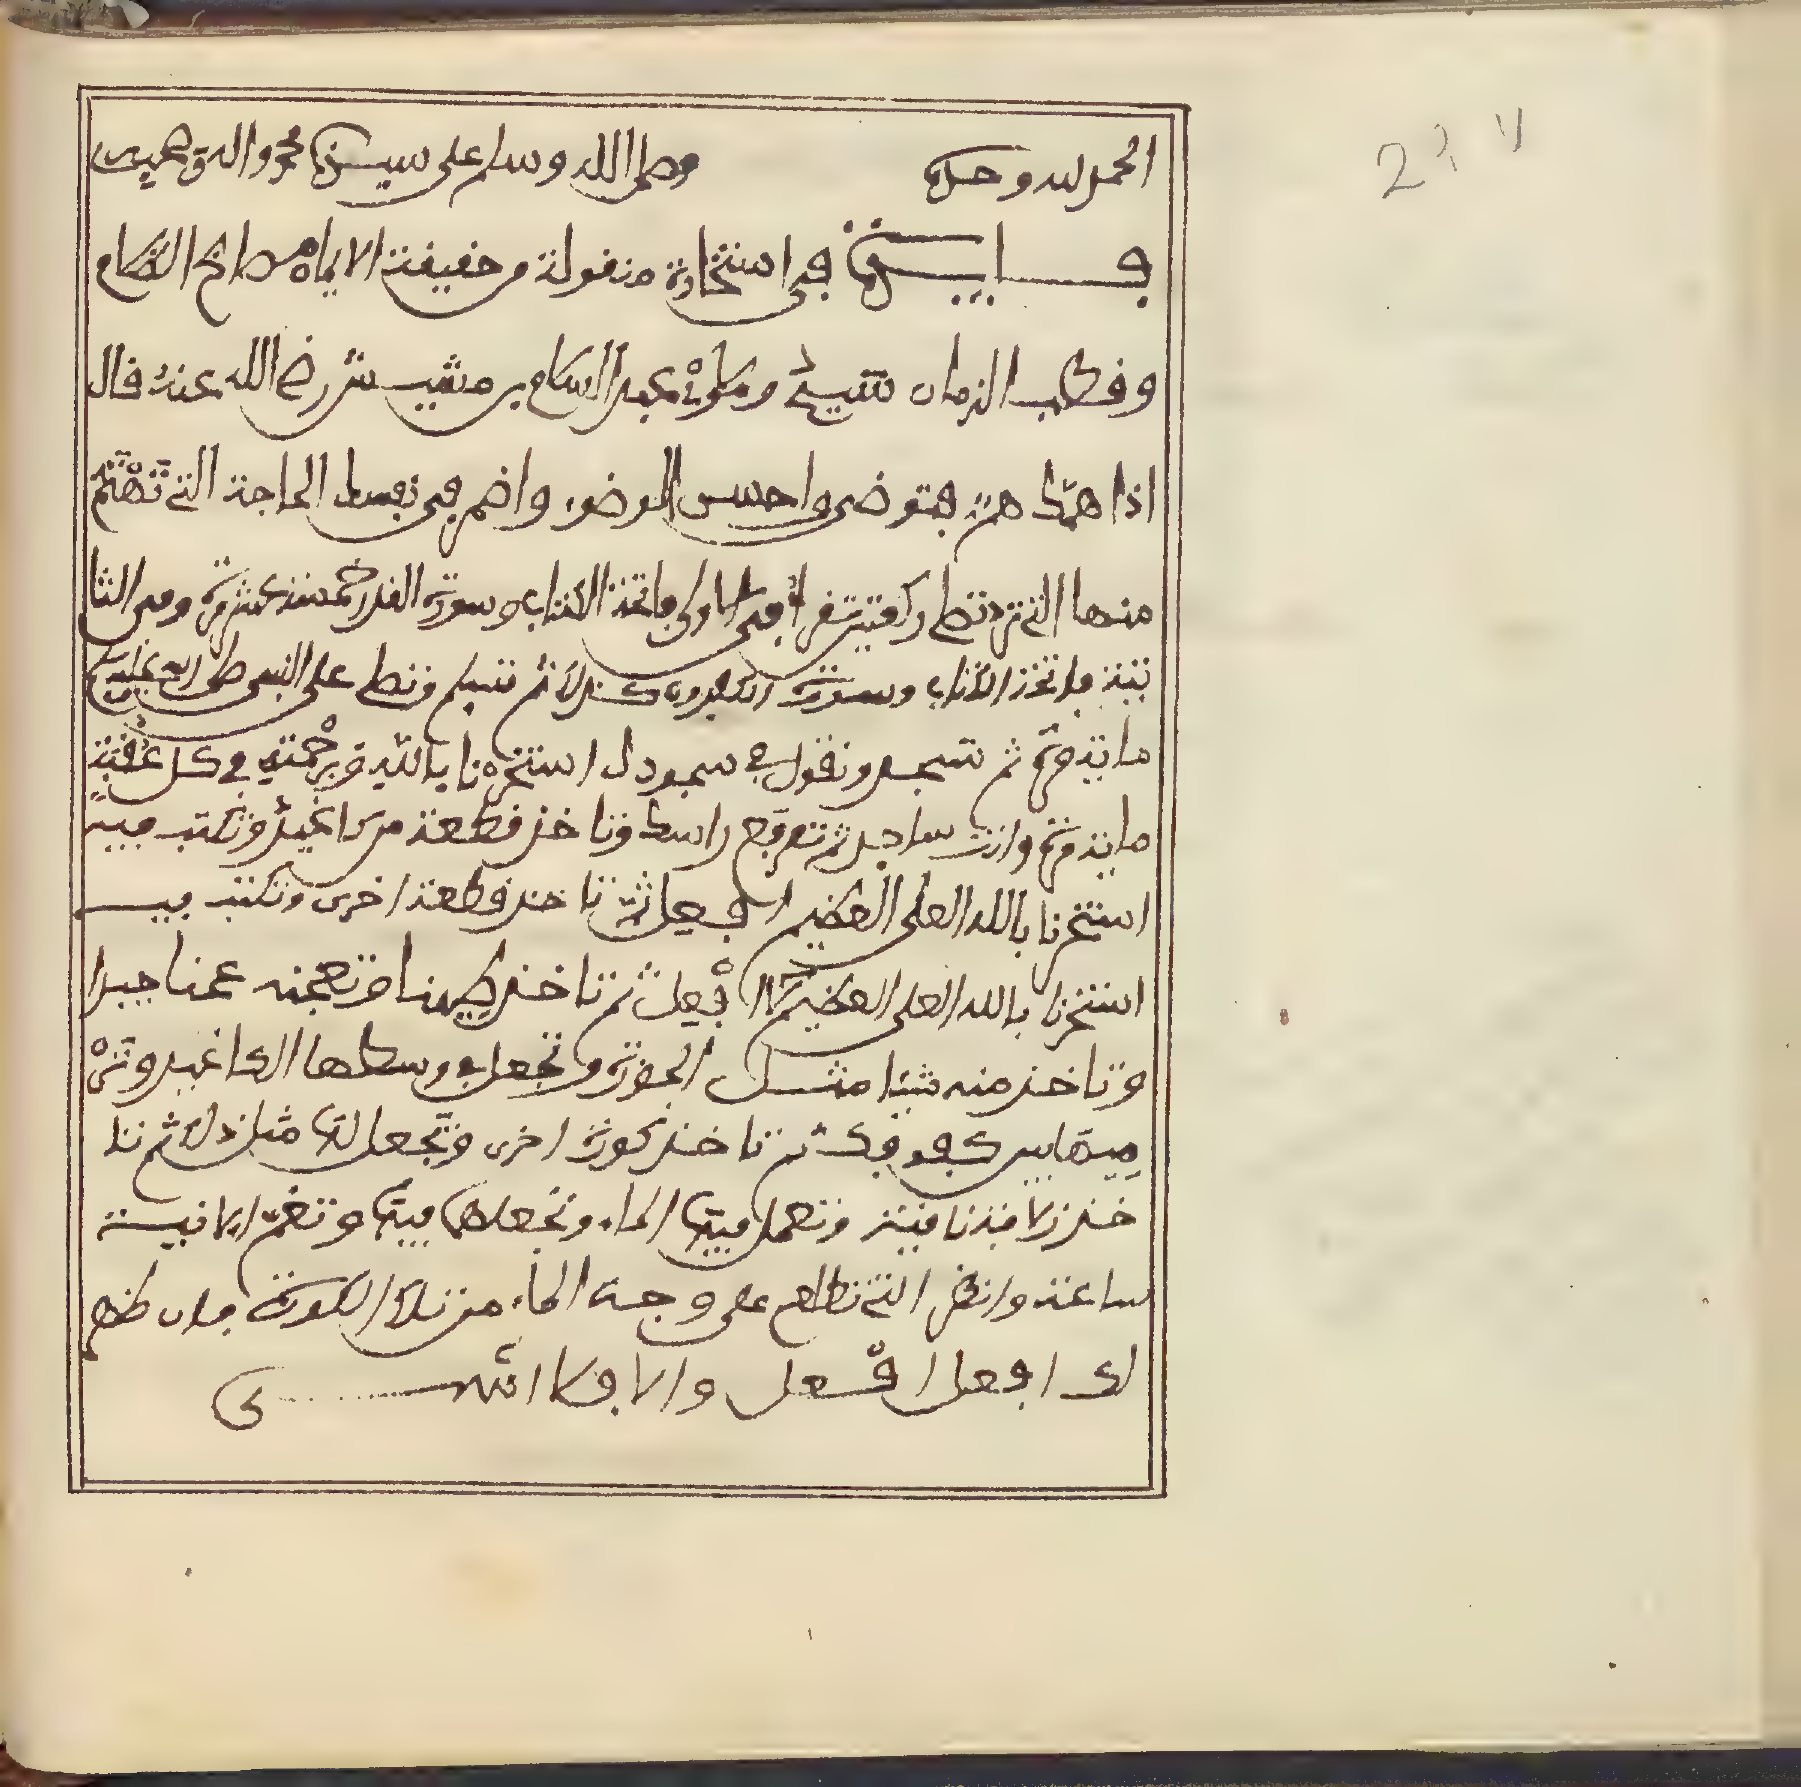 الحمد لله وحده وصلى الله وسلم على سيدنا محمد واله وصحبه
فايدة في استخارة منقولة من حقيقة الامام صالح النظام
وقطب الزمان شيخ ومولاي عبد السلام بن مشيش رضي الله عنه قال
اذا همك هم فتوضى واحسن الوضوء واضمر في نفسك الحاجة التي تهتم
منها التي تريد تصلي ركعتين تقرأ في الاولى فاتحة الكتاب وسورة القدر خمسة عشر مرة وفي الثا
نية فاتحة الكتاب وسورة الكافرون كذلك ثم تسلم وتصلي على النبي صلى الله عليه وسلم
ماية مرة ثم تسجد وتقول في سجودك استخرنا بالله وبرحمته في كل عقبة
ماية مرة وانت ساجد ثم ترفع راسك وتاخذ قطعة من كاغيد وتكتب فيه
استخرنا بالله العلي العظيم افعل ثم تاخذ قطعة اخرى وتكتب فيه
استخرنا بالله العلي العظيم لا افعل ثم تاخذ طينا وتعجنه عجنا جيدا
وتاخذ منه شيئا مثل الجوزة وتجعل في وسطها الكاغيد
ثم تاخذ كورة اخرى وتجعل لها مثل ذلك ثم تا
خذ زلافة نقية وتعمل فيها الماء وتجعلهما فيها وتغم الانية
ساعة وانظر التي تطلع على وجه الماء من تلك الكورة فان ظهر
لك افعل افعل والا فلا انتهى
23